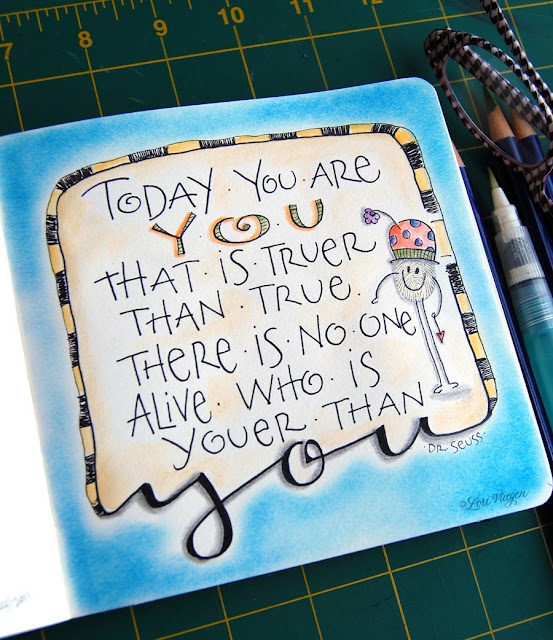 7 8 9 10 11 12
TODAY · YOU · ARE
YOU
THAT · IS · TRUER
THAN · TRUE.
THERE · IS · NO · ONE
ALIVE · WHO · IS
YOUER · THAN
you
· DR. SEUSS ·
©Lori Vliegen